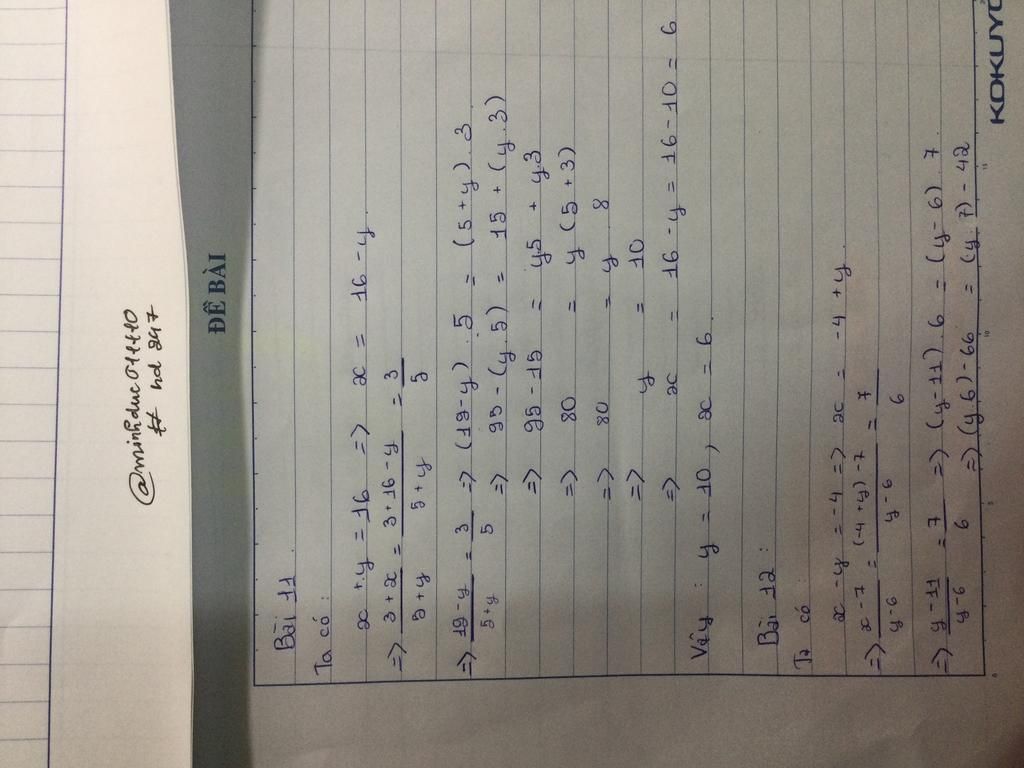 @minhduc01110
## hd 247
ĐỀ BÀI
Bài 11
Ta có:
x + y = 16 => x = 16 - y
=> 3 + x / 5 + y = 3 + 16 - y / 5 + y = 3 / 5
=> 19 - y / 5 + y = 3 / 5 => (19 - y) . 5 = (5 + y) . 3
=> 95 - (y . 5) = 15 + (y . 3)
=> 95 - 15 = y5 + y.3
=> 80 = y (5 + 3)
=> 80 = y . 8
=> y = 10
=> x = 16 - y = 16 - 10 = 6
Vậy : y = 10 , x = 6.
Bài 12 :
Ta có :
x - y = -4 => x = -4 + y
=> x - 7 / y - 6 = (-4 + y) - 7 / y - 6 = 7 / 6
=> y - 11 / y - 6 = 7 / 6 => (y - 11) . 6 = (y - 6) . 7
=> (y . 6) - 66 = (y . 7) - 42
KOKUYO